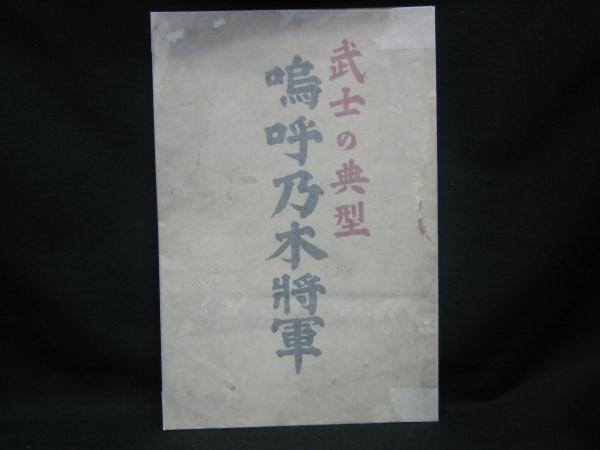 武士の典型
嗚呼乃木將軍